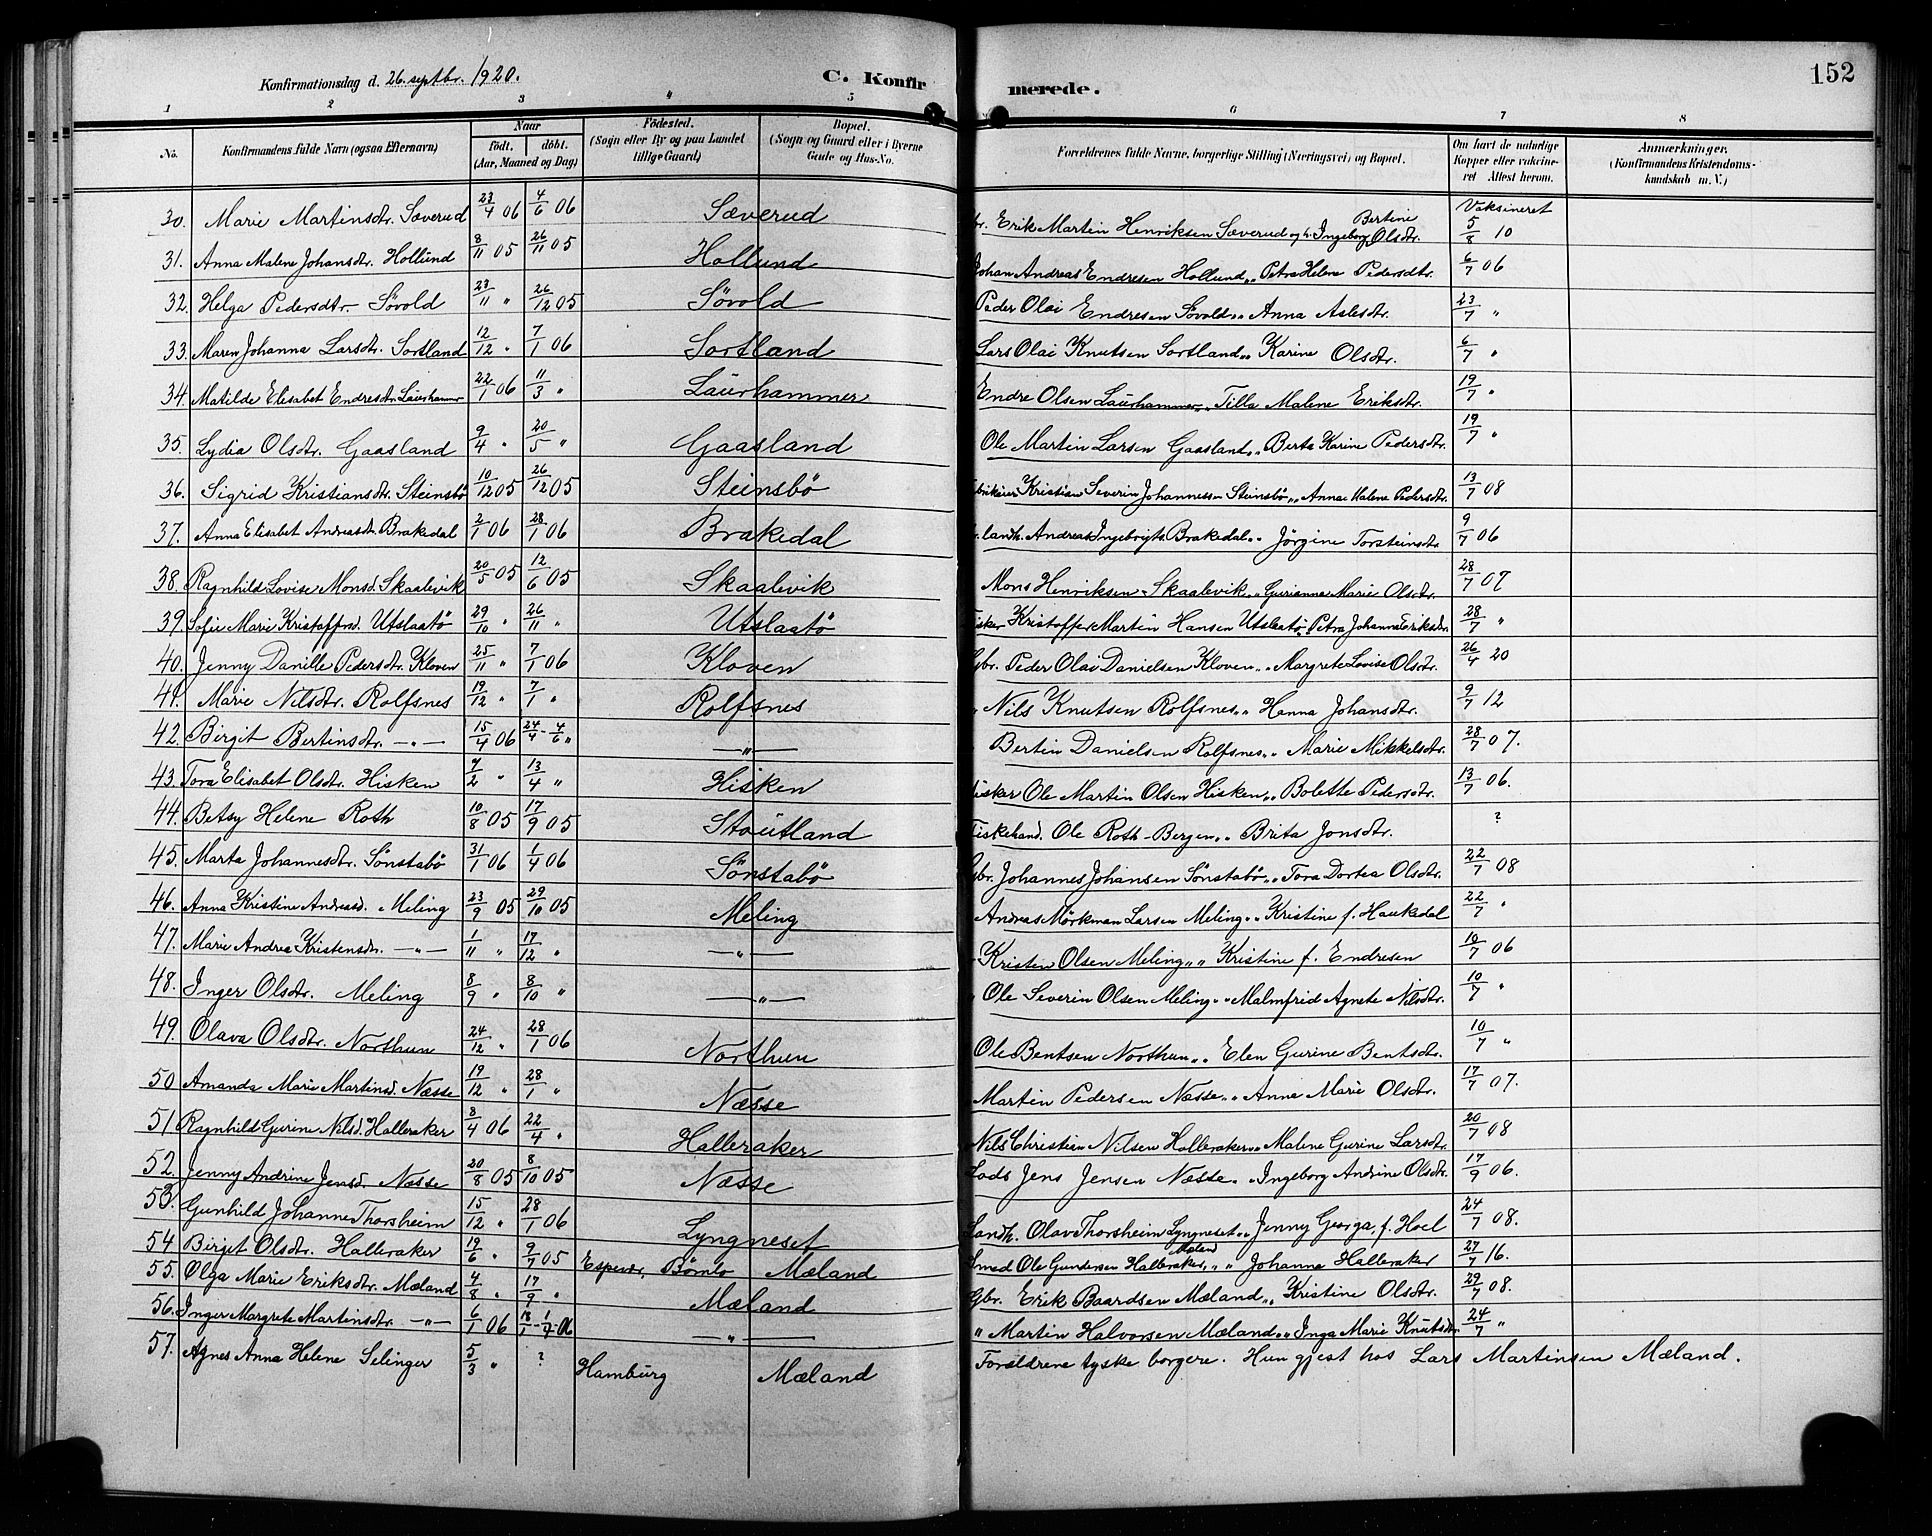 Konfirmationsdag d. 26. septbr. 1920. C. Konfirmerede. 152
1 2 3 4 5 6 7 8
No. Konfirmandens fulde Navn (ogsaa Efternavn) Naar födt. döbt. (Aar, Maaned og Dag) Födested. (Sogn eller By og paa Landet tillige Gaard) Bopæl. (Sogn og Gaard eller i Byerne Gade og Hus-No. Forældrenes fulde Navne, borgerlige Stilling (Næringsvei) og Bopæl. Om havt de naturlige Kopper eller vakcineret Attest herom. Anmærkninger. (Konfirmandens Kristendomskundskab m. V.)
Vaksineret
30. Marie Martinsdtr. Sæverud 23/4 06 4/6 06 Sæverud Erik Martin Henriksen Sæverud og h. Ingeborg Bertine Olsdtr. 5/8 10
31. Anna Malene Johansdtr. Hollund 8/11 05 26/11 05 Hollund Johan Andreas Endresen Hollund „ Petra Helene Pedersdtr. 6/7 06
32. Helga Pedersdtr. Sövold 23/11 „ 26/12 05 Sövold Peder Olai Endresen Sövold „ Anna Aslesdtr. 23/7 „
33. Maren Johanna Larsdtr. Sortland 12/12 „ 7/1 06 Sortland Lars Olai Knutsen Sortland „ Karine Olsdtr. 6/7 „
34. Matilde Elisabet Endresdtr. Laurhammer 22/1 06 11/3 „ Laurhammer Endre Olsen Laurhammer „ Tilla Malene Eriksdtr. 19/7 „
35. Lydia Olsdtr. Gaasland 9/4 „ 20/5 „ Gaasland Ole Martin Larsen Gaasland „ Berta Karine Pedersdtr. 19/7 „
36. Sigrid Kristiansdtr. Steinsbö 10/12 05 26/12 05 Steinsbö Kristian Severin Johannessen Steinsbö „ Anna Malene Pedersdtr. 13/7 08
37. Anna Elisabet Andreasdtr. Brakedal 2/1 06 28/1 06 Brakedal landh. Andreas Ingebrigts. Brakedal „ Jörgine Torsteinsdtr. 9/7 06
38. Ragnhild Lovise Monsd. Skaalevik 20/5 05 12/6 05 Skaalevik Mons Henriksen Skaalevik „ Gurianna Marie Olsdtr. 28/7 07
39. Sofie Marie Kristoffersd. Utslaatö 29/10 „ 26/11 „ Utslaatö Fisker Kristoffer Martin Hansen Utslaatö „ Petra Johanna Eriksdtr. 28/7 „
40. Jenny Danille Pedersdtr. Kloven 25/11 „ 7/1 06 Kloven Gbr. Peder Olai Danielsen Kloven „ Margrete Lovise Olsdtr. 26/4 20
41. Marie Nilsdtr. Rolfsnes 19/12 „ 7/1 „ Rolfsnes „ Nils Knutsen Rolfsnes „ Hanna Johansdtr. 9/7 12
42. Birgit Bertinsdtr. —„— 15/4 06 24/4 - 4/6 „ —„— Bertin Danielsen Rolfsnes „ Marie Mikkelsdtr. 28/7 07.
43. Tora Elisabet Olsdtr. Hisken 7/2 „ 13/4 „ Hisken Fisker Ole Martin Olsen Hisken „ Bolette Pedersdtr. 13/7 06.
44. Betsy Helene Roth 10/8 05 17/9 05 Stoutland Fiskehand. Ole Roth - Bergen „ Brita Jonsdtr. ?
45. Marta Johannesdtr. Sönstabö 31/1 06 1/4 06 Sönstabö Gbr. Johannes Johansen Sönstabö „ Tora Dortea Olsdtr. 22/7 08
46. Anna Kristine Andreasd. Meling 23/9 05 29/10 05 Meling Andreas Mörkman Larsen Meling „ Kristine f. Haukedal 22/7 „
47. Marie Andrea Kristensdtr. —„— 1/11 „ 17/12 „ —„— Kristen Olsen Meling „ Kristine f. Endresen 10/7 06
48. Inger Olsdtr. Meling 8/9 „ 8/10 „ —„— „ Ole Severin Olsen Meling „ Malmfrid Agnete Nilsdtr. 10/7 „
49. Olava Olsdtr. Northun 24/12 „ 28/1 06 Northun Ole Bentsen Northun „ Elen Gurine Bentsdtr. 10/7 „
50 Amanda Marie Martinsd. Næsse 19/12 „ 28/1 „ Næsse Martin Pedersen Næsse „ Anna Marie Olsdtr. 17/7 07.
51 Ragnhild Gurine Nilsd. Halleraker 8/4 06 22/4 „ Halleraker Nils Christian Nilsen Halleraker „ Malene Gurine Larsdtr. 20/7 08
52. Jenny Andrine Jensd. Næsse 20/8 05 8/10 05 Næsse Lods Jens Jensen Næsse „ Ingeborg Andrine Olsdtr. 17/9 06.
53. Gunhild Johanne Thorsheim 15/12 „ 28/1 06 Lyngneset Landh. Olav Thorsheim Lyngneset „ Jenny Georga f. Hoel 24/7 08.
54 Birjet Olsdtr. Halleraker 19/6 „ 9/7 05 Espevær, Bömlo Mæland Smed Ole Gundersen Halleraker, Mæland „ „ Johanna Halleraker 27/7 16.
55. Olga Marie Eriksdtr. Mæland 4/8 „ 17/9 „ Mæland Gbr. Erik Baardsen Mæland „ Kristine Olsdtr. 29/7 08.
56. Inger Margrete Martinsdtr. —„— 6/1 06 18/1 - 1/4 06 —„— „ Martin Halvorsen Mæland „ Inga Marie Knutsdtr. 24/7 „
57. Agnes Anna Helene Selinger 5/3 „ ? Hamburg Mæland Forældrene tyske borgere. Hun gjest hos Lars Martinsen Mæland.